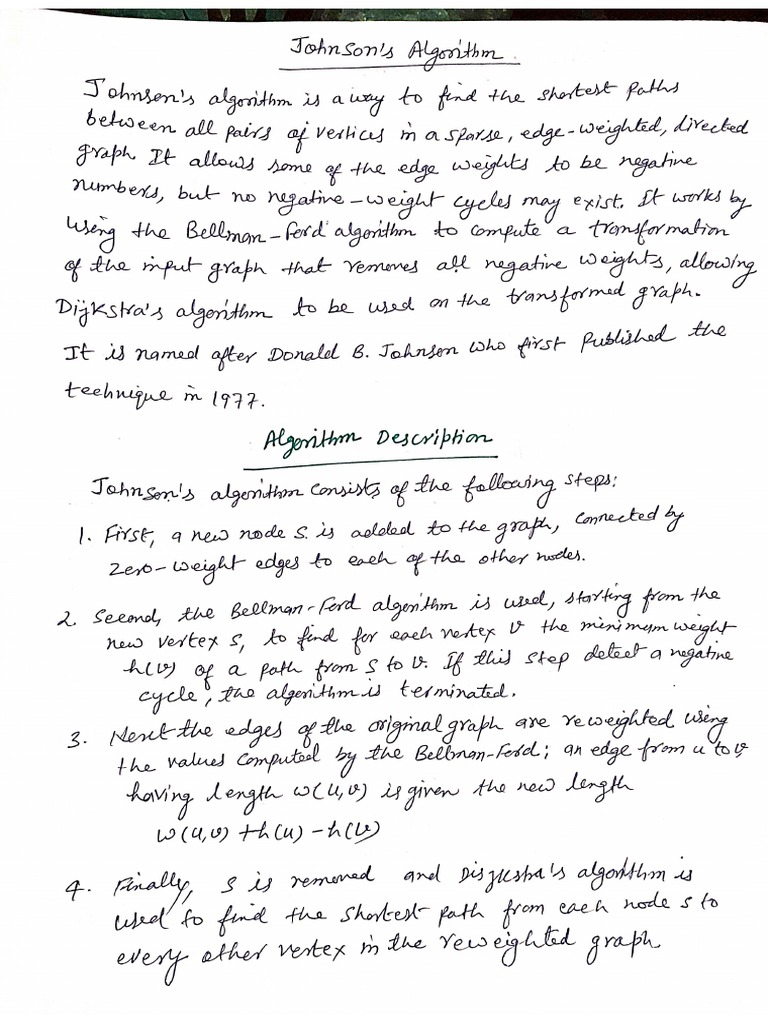 Johnson's Algorithm
Johnson's algorithm is a way to find the shortest paths
between all pairs of vertices in a sparse, edge-weighted, directed
graph. It allows some of the edge weights to be negative
numbers, but no negative-weight cycles may exist. It works by
using the Bellman-Ford algorithm to compute a transformation
of the input graph that removes all negative weights, allowing
Dijkstra's algorithm to be used on the transformed graph.
It is named after Donald B. Johnson who first published the
technique in 1977.
Algorithm Description
Johnson's algorithm consists of the following steps:
1. First, a new node S. is added to the graph, connected by
zero-weight edges to each of the other nodes.
2. Second, the Bellman-Ford algorithm is used, starting from the
new vertex S, to find for each vertex v the minimum weight
h(v) of a path from S to v. If this step detect a negative
cycle, the algorithm is terminated.
3. Next the edges of the original graph are reweighted using
the values computed by the Bellman-Ford; an edge from u to v,
having length w(u,v) is given the new length
w(u,v) + h(u) - h(v)
4. Finally, S is removed and Disjksha's algorithm is
used to find the shortest path from each node s to
every other vertex in the reweighted graph